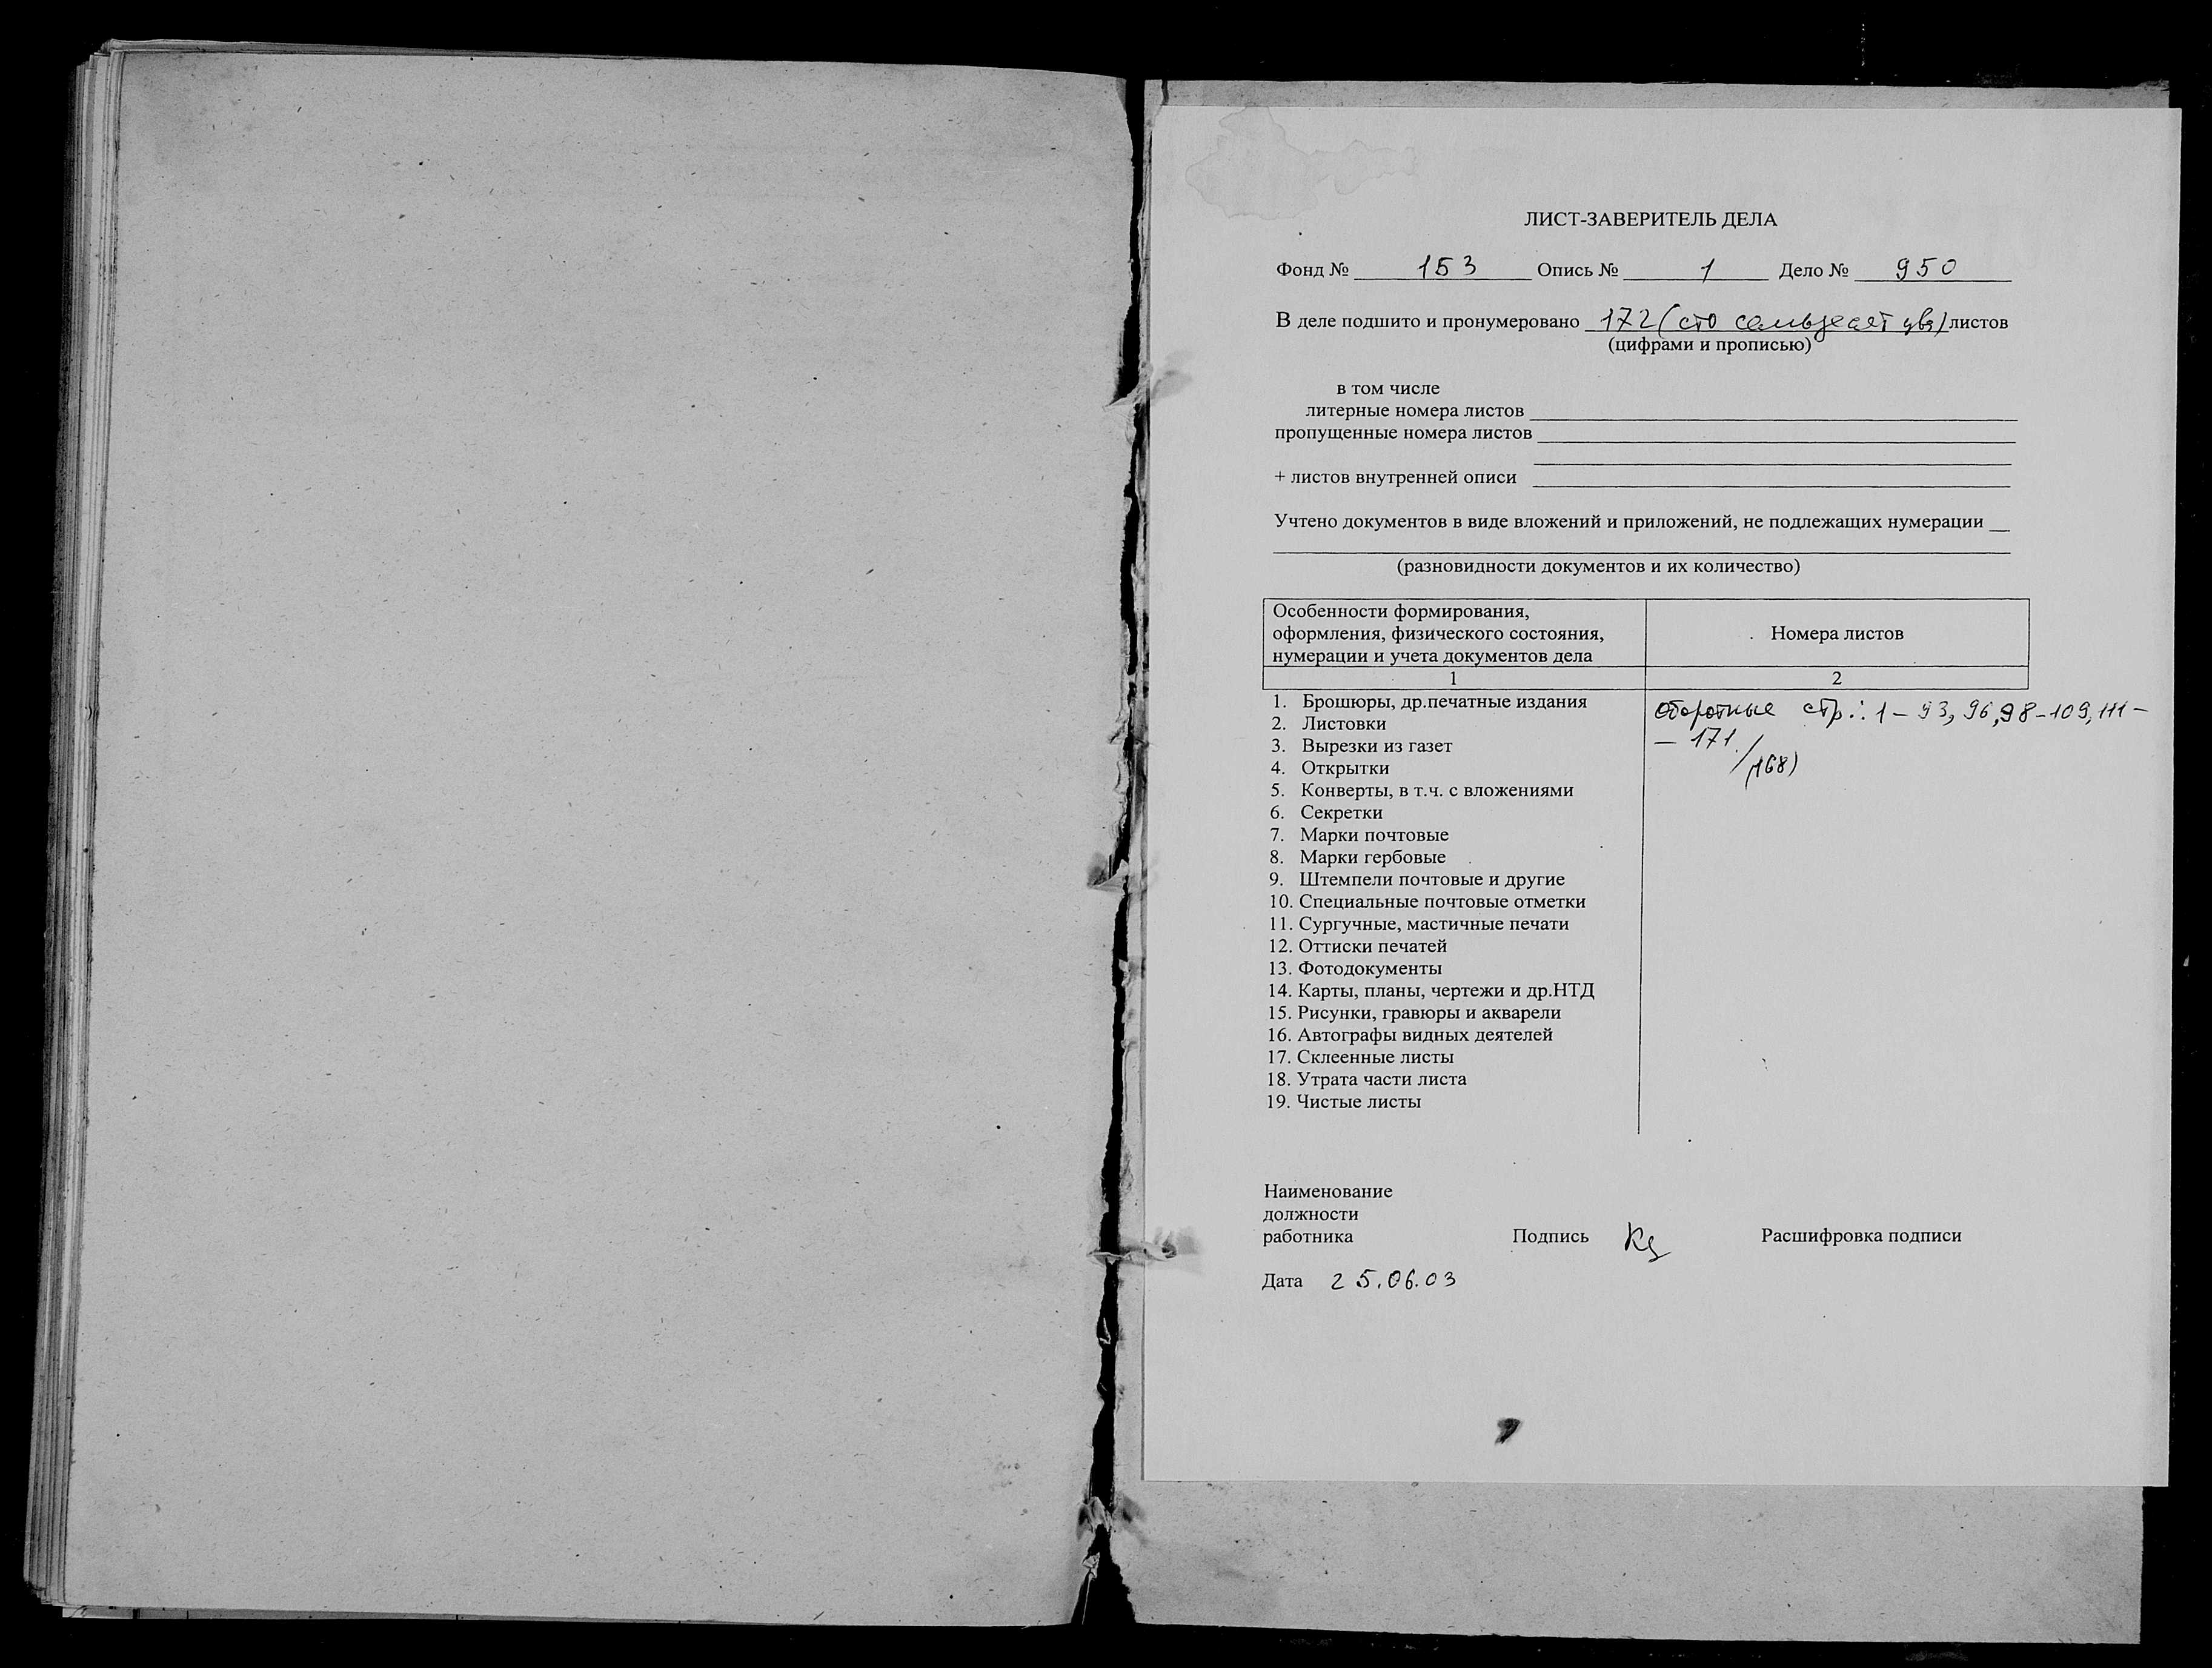 ЛИСТ-ЗАВЕРИТЕЛЬ ДЕЛА
Фонд № 153 Опись № 1 Дело № 950
В деле подшито и пронумеровано 172 (сто семьдесят два) листов
(цифрами и прописью)
в том числе
литерные номера листов
пропущенные номера листов
+ листов внутренней описи
Учтено документов в виде вложений и приложений, не подлежащих нумерации
(разновидности документов и их количество)
Особенности формирования,
оформления, физического состояния,
нумерации и учета документов дела
Номера листов
1 2
1. Брошюры, др.печатные издания
2. Листовки
3. Вырезки из газет
4. Открытки
5. Конверты, в т.ч. с вложениями
6. Секретки
7. Марки почтовые
8. Марки гербовые
9. Штемпели почтовые и другие
10. Специальные почтовые отметки
11. Сургучные, мастичные печати
12. Оттиски печатей
13. Фотодокументы
14. Карты, планы, чертежи и др.НТД
15. Рисунки, гравюры и акварели
16. Автографы видных деятелей
17. Склеенные листы
18. Утрата части листа
19. Чистые листы
оборотные стр.: 1 – 93, 96, 98 – 109, 111 –
– 171. /
(168)
Наименование
должности
работника Подпись Расшифровка подписи
Дата 25.06.03